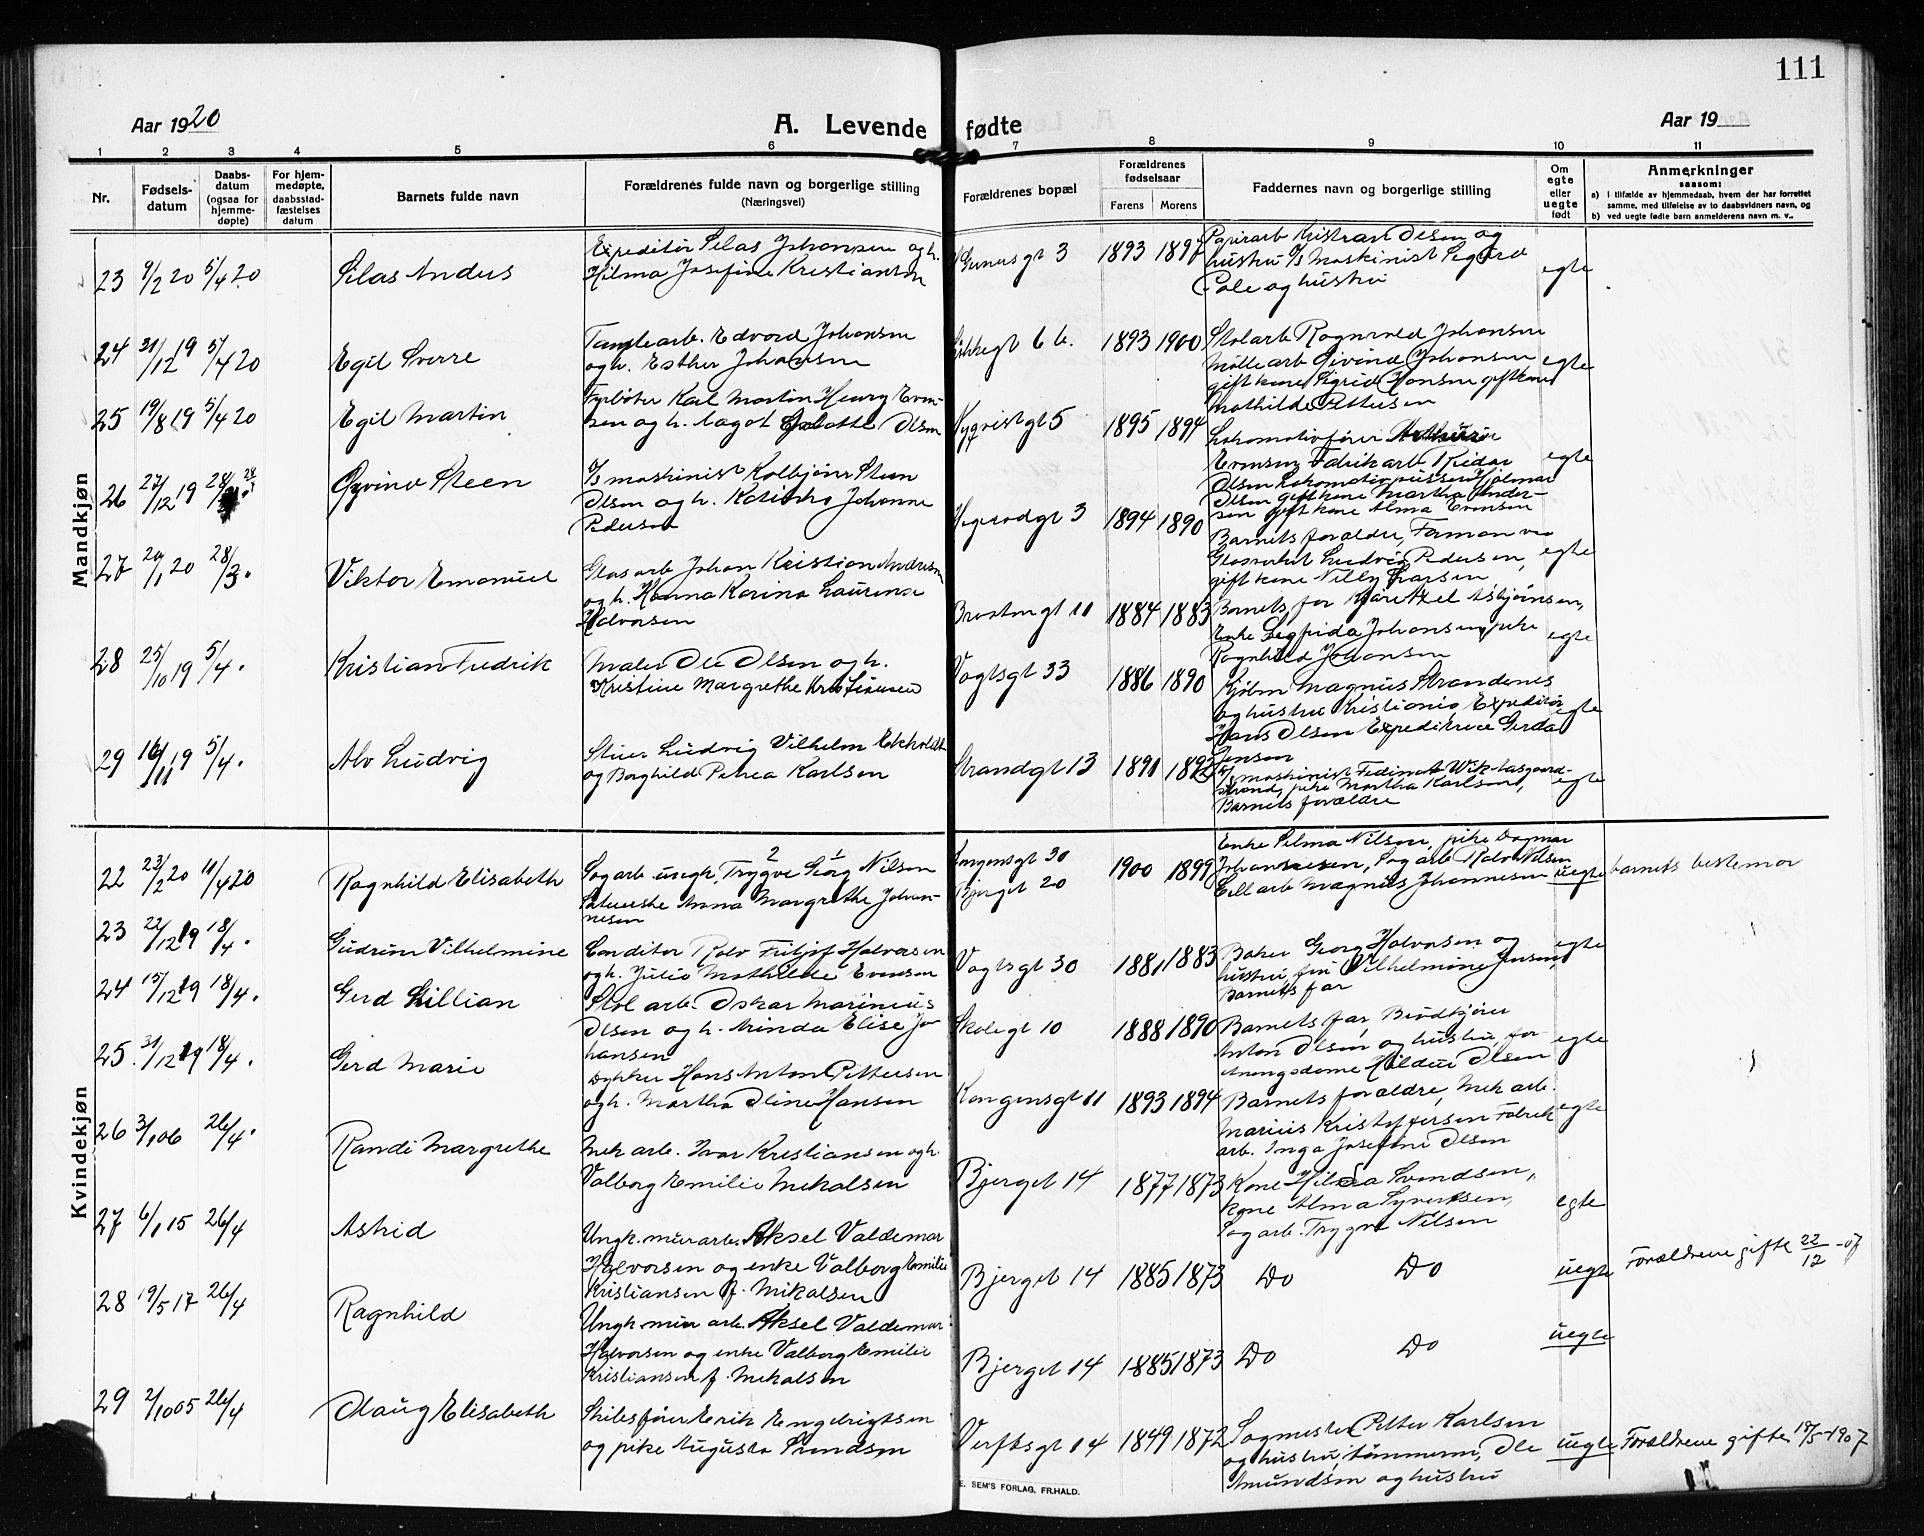 111
Aar 1920
A. Levende fødte
Aar 19
1 2 3 4 5 6 7 8 9 10 11
Nr.
Fødsels-
datum
Daabs-
datum
(ogsaa for
hjemme-
døpte)
For hjem-
medøpte,
daabsstad-
fæstelses
datum
Barnets fulde navn
Forældrenes fulde navn og borgerlige stilling
(Næringsvei)
Forældrenes bopæl
Forældrenes
fødselsaar
Farens Morens
Faddernes navn og borgerlige stilling
Om
egte
eller
uegte
født
Anmerkninger
saasom:
a) i tilfælde av hjemmedaab, hvem der har forrettet
samme, med tilføielse av to daabsvidners navn, og
b) ved uegte fødte barn anmelderens navn m. v..
Mandkjøn
23 9/2 20 5/4 20 Silas Anders
Expeditör Silas Johansen og h.
Hilma Josefine Kristiansen
3 1893
Papirarb Kristian Olsen og
hustru Maskinist Sigurd
og hustru
egte
24 31/12 19 5/4 20 Egil Sverre
arb. Edvard Johansen
og h. Esther Johansen
6 b. 1893 1900
Stolarb Ragnvald Johansen
Møllearb Øivind Johansen
gift kone Sigrid Hansen gift kone
Mathilde Pettersen
egte
25 19/8 19 5/4 20 Egil Martin
Fyrböter Karl Martin Henry Even-
sen og h. Aagot Olsen
5 1895 1894
Lokomotivfører
Evensen Fabrikarb Reidar
Olsen Lokomotivpusser Hjalmar
Olsen gift kone Martha Ander-
sen gift kone Alma Evensen
egte
26 27/12 19 28/ Øyvind Steen
maskinist Kolbjörn Steen
Olsen og h. Johanne
Pedersen
3 1894 1890
Barnets forældre, Formand ved
Glasverket Ludvig Pedersen,
gift kone Nelly Larsen
egte
27 29/1 20 28/3. Viktor Emanuel
Glasarb Johan Kristian Andersen
og h. Hanna Karina Laurense
Halvorsen
11 1884 1883
Barnets far Asbjörnsen,
Enke Johansen, pike
Ragnhild Johansen
egte
28 25/10 19 5/4. Kristian Fredrik
Maler Ole Olsen og h.
Kristine Margrethe Kristiansen
Vogtsgt 33 1886 1890
Magnus Strandenes
og hustru Expeditör
Hans Olsen Expeditrice Gerda
Jensen
egte
29 16/11 19 5/4. Alv Ludvig
Ludvig Vilhelm
og Borghild Petrea Karlsen
Strandgt 13 1891
maskinist Wik Aasgaard-
strand, pike Martha Karlsen,
Barnets forældre
egte
Kvindekjøn
22 23/2 20 11/4 20 Ragnhild Elisabeth
Sagarb. ungk. Trygve Georg Nilsen
Anna Margrethe Johan-
nesen
Kongensgt 30
Bjerget 20
1900 1899
Enke Selma Nilsen, pike Dagmar
Johannesen, Sagarb Rolv Nilsen
Cell arb Magnus Johannesen
uegte barnets bestemor
23 22/12 19 18/4. Gudrun Vilhelmine
Conditor Rolv Fritjof Halvorsen
og h. Julie Mathilde Evensen
Vogtsgt 30 1881 1883
Baker Georg Halvorsen og
hustru, fru Vilhelmine Jensen,
Barnets far
egte
24 15/12 19 18/4. Gerd Lillian
Stol arb. Oskar Marinius
Olsen og h. Minda Elise Jo-
hansen
Skolegt 10 1888 1890
Barnets far, Brödkjörer
Anton Olsen og hustru, for-
Hildur Olsen
egte
25. 31/12 19 18/4. Gerd Marie
Dykker Hans Anton Pettersen
og h. Martha Oline Hansen
Kongensgt 11 1893 1894
Barnets forældre, Mek arb.
Marius Kristoffersen Fabrik
arb. Inga Josefine Olsen
egte
26 3/1 06 26/4. Randi Margrethe
Mek arb. Ivar Kristiansen og h.
Valborg Emilie Mikalsen
Bjerget 14 1877 1873
Kone Hilda Svendsen,
kone Alma Syvertsen,
Sagarb. Trygve Nilsen
egte
27 6/1 15 26/4 Astrid
Ungk. murarb. Aksel Valdemar
Halvorsen og enke Valborg Emilie
Kristiansen f. Mikalsen
Bjerget 14 1885 1873 Do Do uegte Forældrene gifte 22/12 -07
28 19/5 17 26/4 Ragnhild
Ungk mur arb. Aksel Valdemar
Halvorsen og enke Valborg Emilie
Kristiansen f. Mikalsen
Bjerget 14 1885 1873 Do Do uegte
29 2/10 05 26/4 Olaug Elisabeth
Skibsfører Erik Engebrigtsen
og pike Augusta
Verftsgt 14 1849 1872
Sagmester Petter Karlsen
og hustru, tömmerm. Ole
Amundsen og hustru
uegte Forældrene gifte 18/5-1907
E. SEM'S FORLAG, FR.HALD.